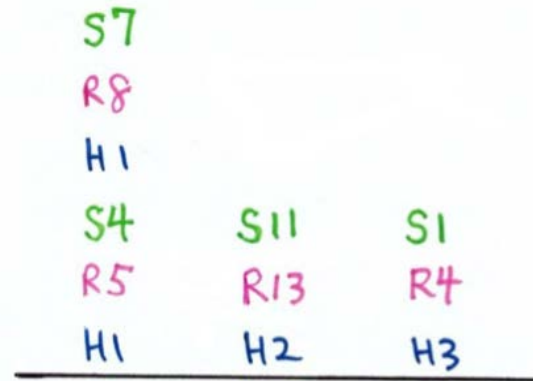 S7
R8
H1
S4 S11 S1
R5 R13 R4
H1 H2 H3